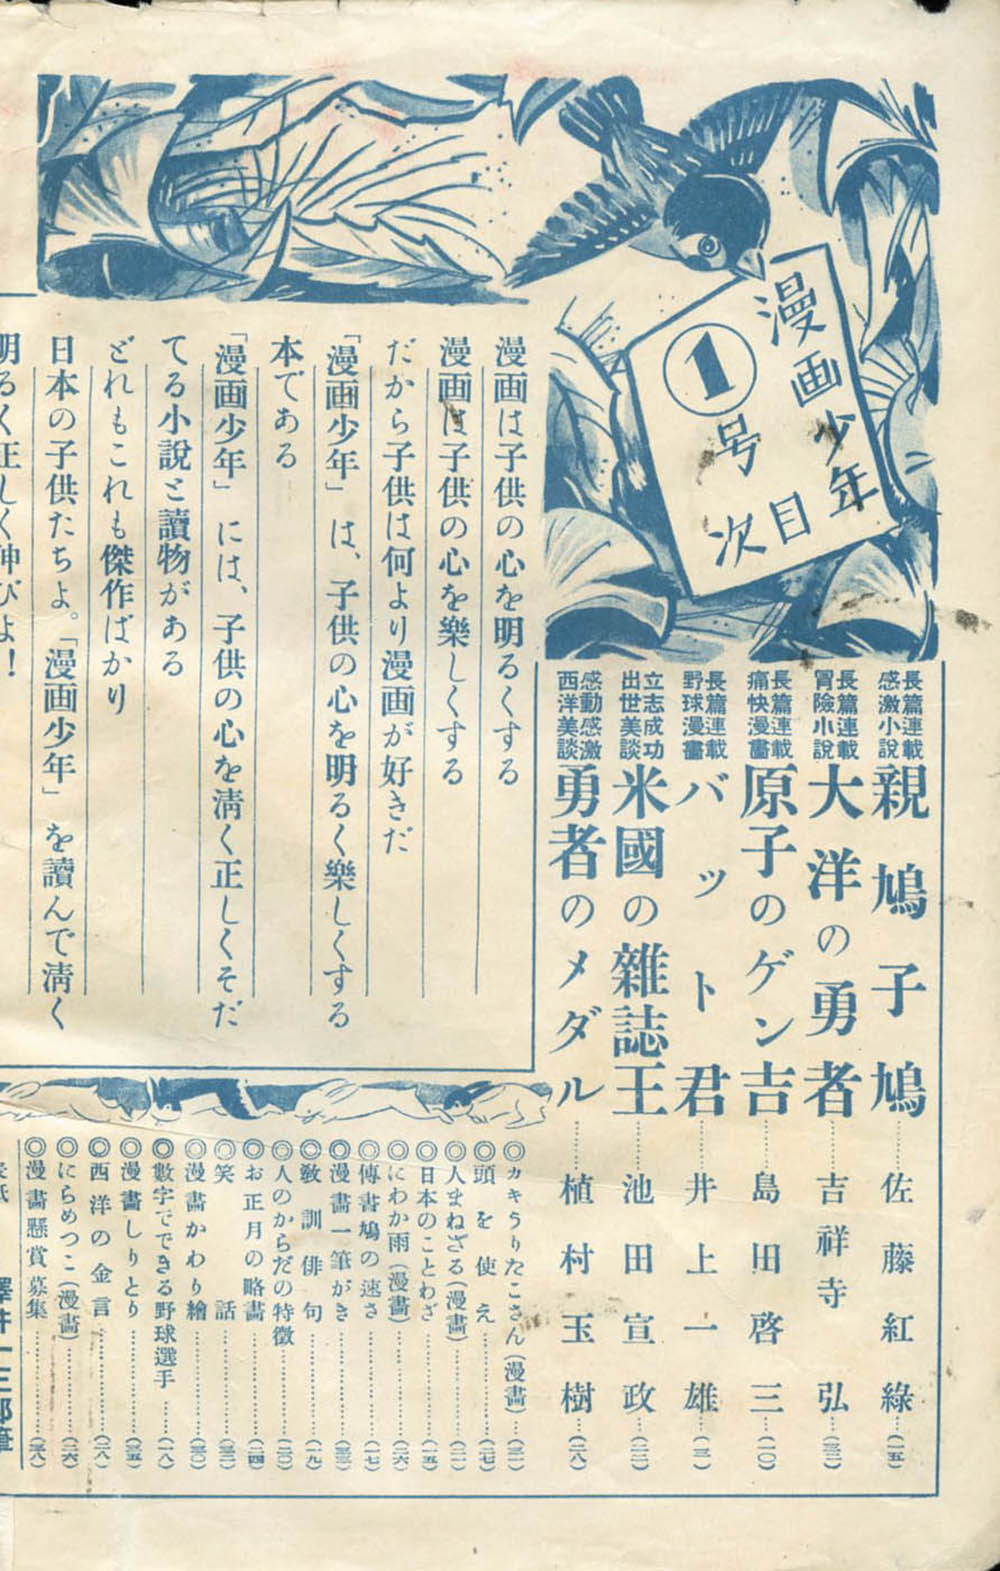 漫画少年
①号
目次
長篇連載
感激小説
親鳩子鳩……佐藤紅綠…(一五)
長篇連載
冒險小說
大洋の勇者……吉祥寺弘…(三二)
長篇連載
痛快漫畫
原子のゲン吉……島田啓三…(一〇)
長篇連載
野球漫畫
バット君……井上一雄…(三)
立志成功
出世美談
米國の雜誌王……池田宣政…(二二)
感動感激
西洋美談
勇者のメダル……植村玉樹…(二八)
漫画は子供の心を明るくする
漫画は子供の心を樂しくする
だから子供は何より漫画が好きだ
「漫画少年」は、子供の心を明るく樂しくする
本である
「漫画少年」には、子供の心を淸く正しくそだ
てる小說と讀物がある
どれもこれも傑作ばかり
日本の子供たちよ。「漫画少年」を讀んで淸く
明るく正しく伸びよ!
◎カキうりたこさん(漫畫)
◎頭を使え……(二七)
◎人まねざる(漫畫)
◎日本のことわざ……(一五)
◎にわか雨(漫畫)……(二六)
◎傳書鳩の速さ……(一七)
◎漫畫一筆がき……(三三)
◎教訓俳句……(一九)
◎人のからだの特徴……(二〇)
◎お正月の略畫……(二四)
◎笑話
◎漫畫かわり繪……(三〇)
◎數字でできる野球選手……(一八)
◎漫畫しりとり……(三五)
◎西洋の金言……(二八)
◎にらめつこ(漫畫)……(二六)
◎漫畫懸賞募集……(三八)
澤井一三郎筆